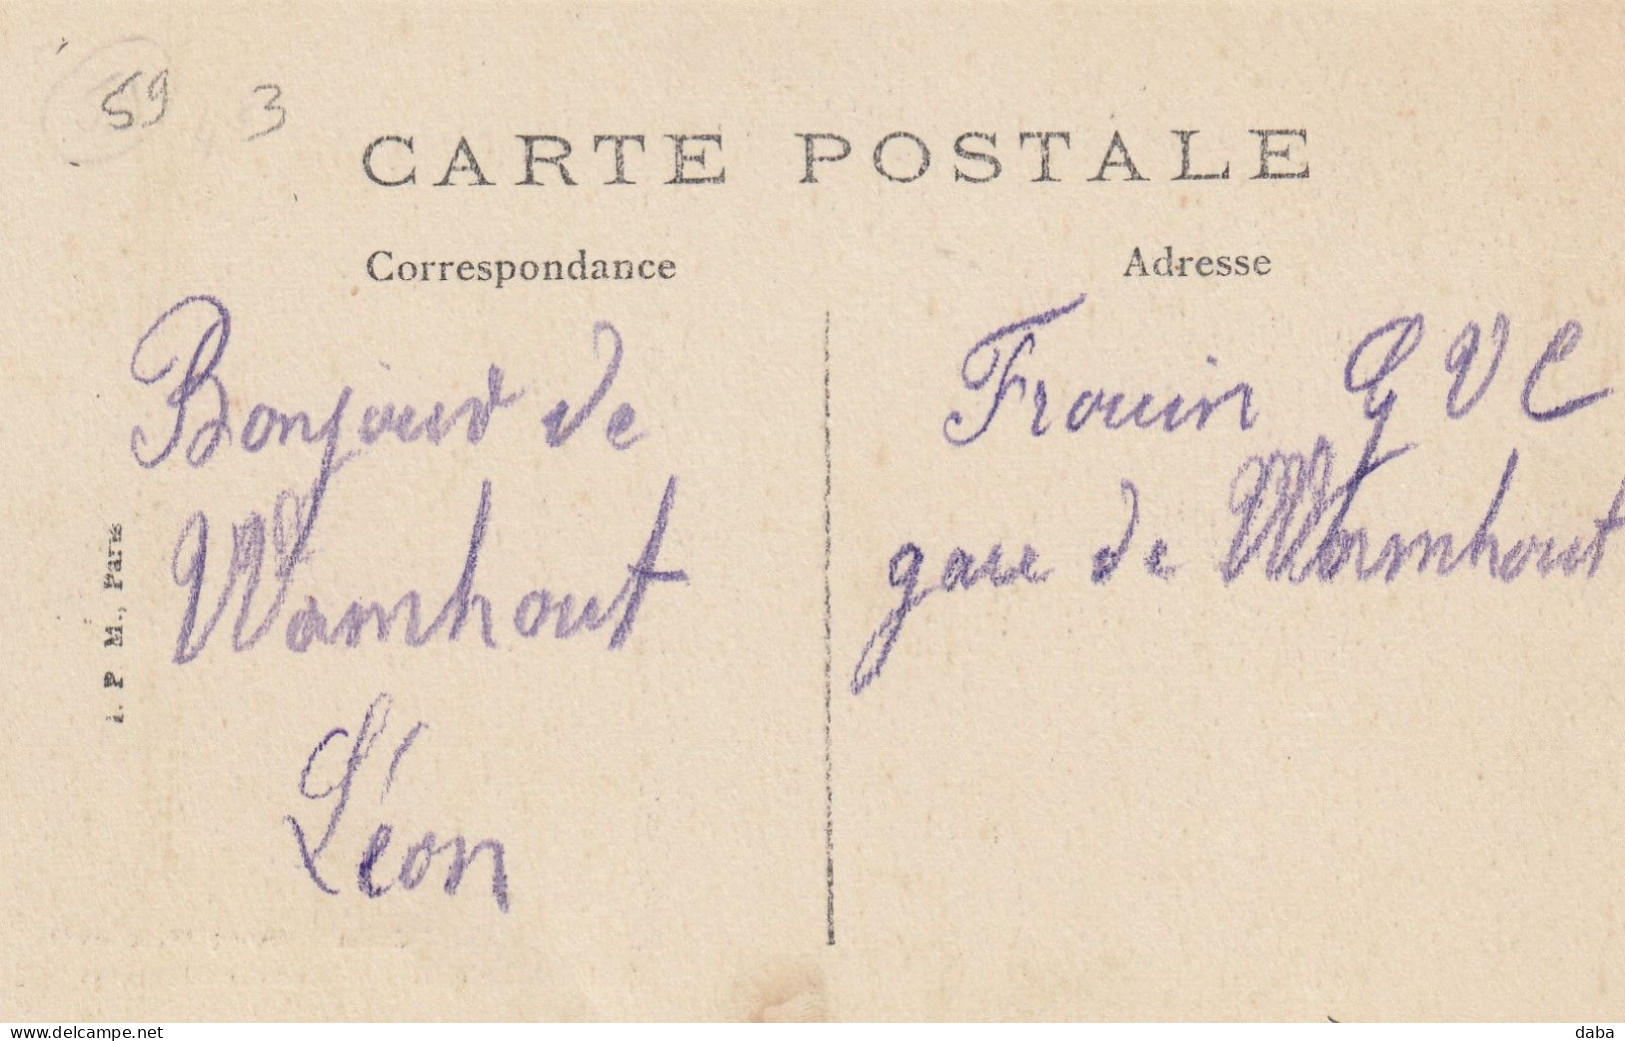 59 3
CARTE POSTALE
Correspondance
Adresse
Bonjour de
Wamhout
Léon
Frouin G V C
gare de Wormhout
I. P M., Paris
www.delcampe.net
daba